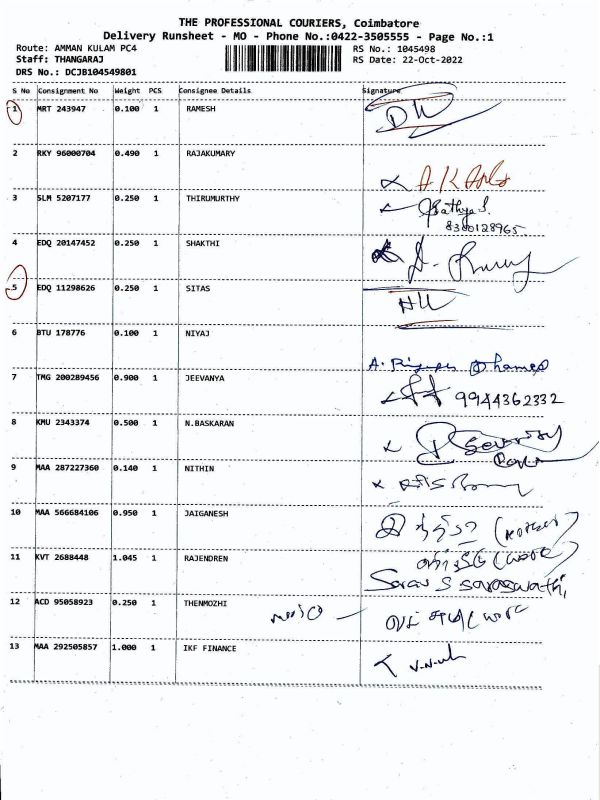 THE PROFESSIONAL COURIERS, Coimbatore
Delivery Runsheet - MO - Phone No.:0422-3505555 - Page No.:1
Route: AMMAN KULAM PC4 RS No.: 1045498
Staff: THANGARAJ RS Date: 22-Oct-2022
DRS No.: DCJB104549801
S No Consignment No Weight PCS Consignee Details Signature
1 MRT 243947 0.100 1 RAMESH
2 RKY 96000704 0.490 1 RAJAKUMARY
3 SLM 5207177 0.250 1 THIRUMURTHY Sathya S.
8300128965
4 EDQ 20147452 0.250 1 SHAKTHI
5 EDQ 11298626 0.250 1 SITAS
6 BTU 178776 0.100 1 NIYAJ
7 TMG 200289456 0.900 1 JEEVANYA 9944362332
8 KMU 2343374 0.500 1 N.BASKARAN
9 MAA 287227360 0.140 1 NITHIN
10 MAA 566684106 0.950 1 JAIGANESH
11 KVT 2688448 1.045 1 RAJENDREN
Saraswathi,
12 ACD 95058923 0.250 1 THENMOZHI
13 MAA 292505857 1.000 1 IKF FINANCE